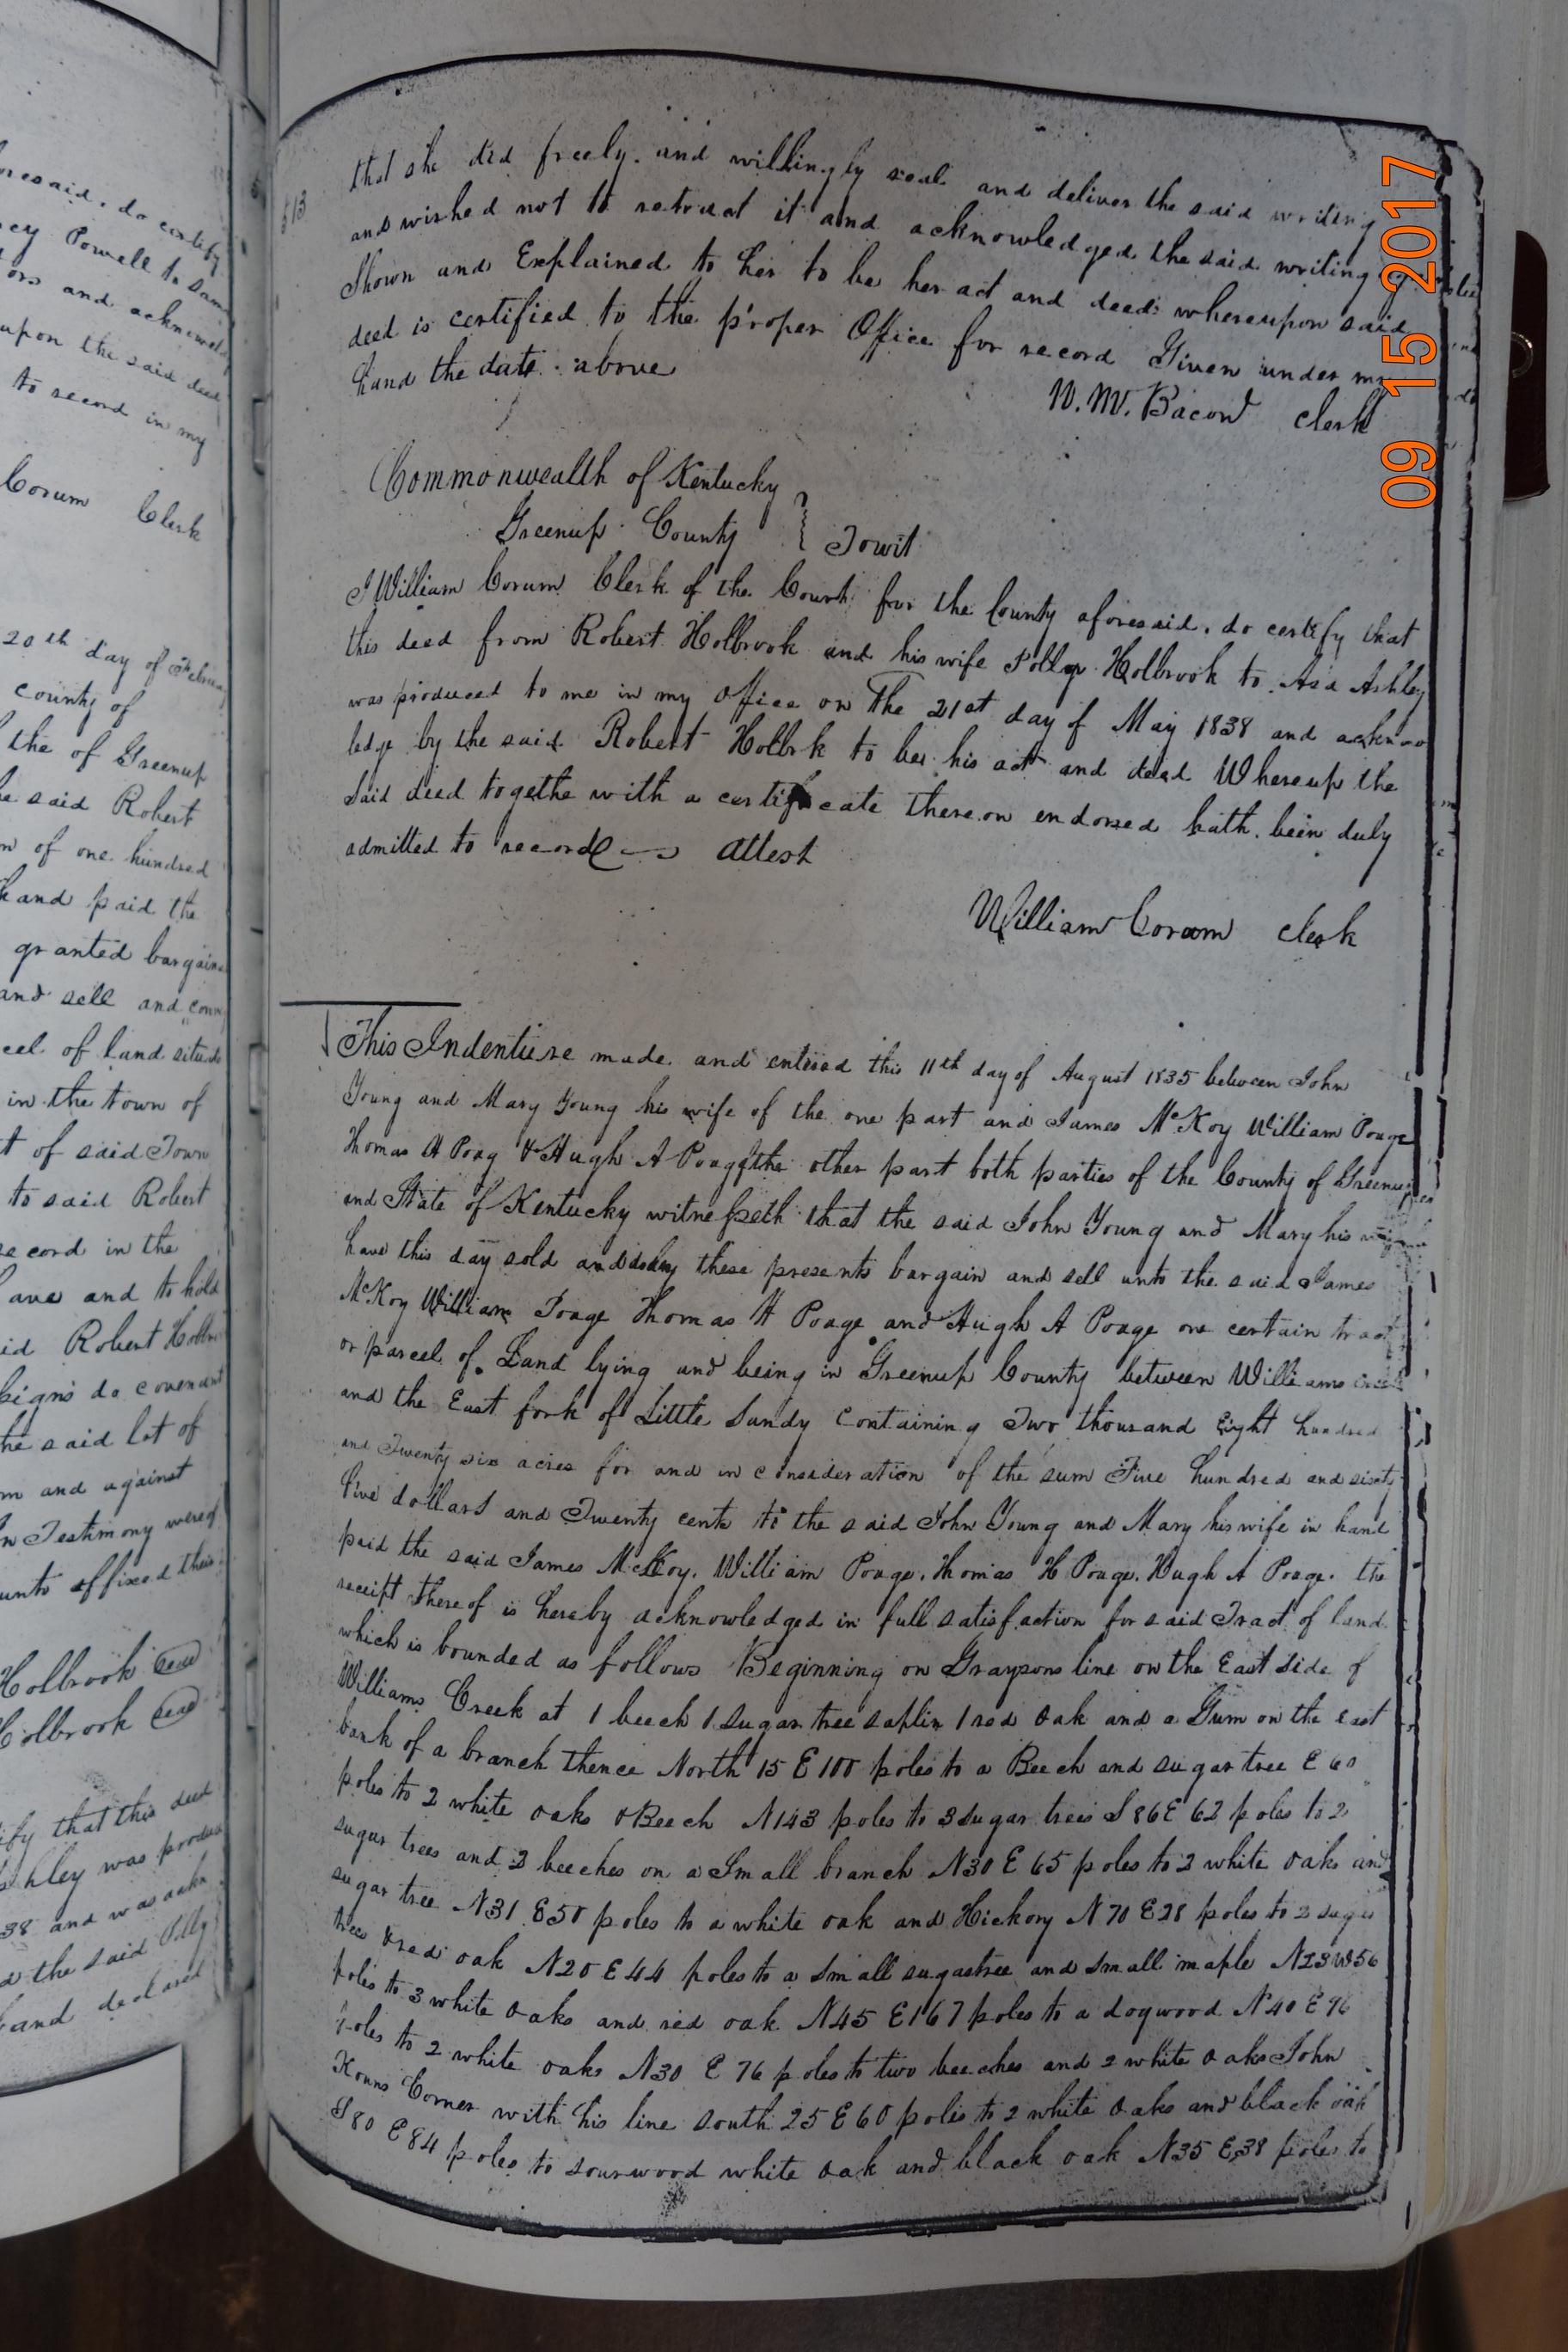 oresaid, do certify
cey Powell to Sam
ors and acknowl
upon the said deed
to record in my
Corum Clerk
20th day of
county of
the of Greenup
e said Robert
of one hundred
hand paid the
granted bargain
and sell and
cel of land
in the town of
t of said Town
to said Robert
ecord in the
ave and to hold
id Robert
signs do covenant
the said lot of
m and against
n Testimony
unto affixed their
Holbrook Seal
Holbrook Seal
ify that this deed
shley was
38 and was
d the said
and declared
513
that she did freely. and willingly seal and deliver the said writing
and wished not to retract it and acknowledged the said writing
Shown and Explained to her to be her act and deed whereupon said
deed is certified to the proper Office for record Given under my
hand the date above
W. W. Bacon Clerk
Commonwealth of Kentucky
Greenup County } Towit
I William Corum Clerk of the Court for the County aforesaid, do certify that
this deed from Robert Holbrook and his wife Polly Holbrook to Asa Ashley
was produced to me in my office on The 21st day of May 1838 and acknow
ledge by the said Robert Holbrk to be his act and deed Whereup the
Said deed togethe with a certificate thereon endorsed hath been duly
admitted to record attest
William Corum clerk
This Indenture made and entered this 11th day of August 1835 between John
Young and Mary Young his wife of the one part and James McKoy William Poage
Thomas H Poag & Hugh A Poag of the other part both parties of the County of Greenup
and State of Kentucky witnesseth that the said John Young and Mary his
have this day sold and by these presents bargain and sell unto the said James
McKoy William Poage Thomas H Poage and Hugh A Poage one certain tract
or parcel of Land lying and being in Greenup County between Williams creek
and the East fork of Little Sandy Containing Two thousand Eight hundred
and Twenty six acres for and in consideration of the sum Five hundred and sixty
five dollars and Twenty cents to the said John Young and Mary his wife in hand
paid the said James McKoy, William Poage, Thomas H Poage, Hugh A Poage. the
receipt thereof is hereby acknowledged in full satisfaction for said Tract of land
which is bounded as follows Beginning on Graysons line on the East Side of
Williams Creek at 1 beech 1 sugar tree saplin 1 red oak and a Gum on the east
bank of a branch thence North 15 E 100 poles to a Beech and sugar tree E 60
poles to 2 white oaks & Beech N143 poles to 3 sugar trees S 86 E 62 poles to 2
sugar trees and 2 beeches on a Small branch N30 E 65 poles to 2 white oaks and
sugar tree N31 E50 poles to a white oak and Hickory N 70 E28 poles to 2 sugar
trees & red oak N20 E 44 poles to a small sugartree and small maple N23W56
poles to 3 white oaks and red oak N45 E167 poles to a dogwood N40 E 96
poles to 2 white oaks N30 E 76 poles to two beeches and 2 white oaks John
Kouns Corner with his line south 25 E 60 poles to 2 white oaks and black oak
S80 E84 poles to sourwood white oak and black oak N35 E38 poles to
09 15 2017